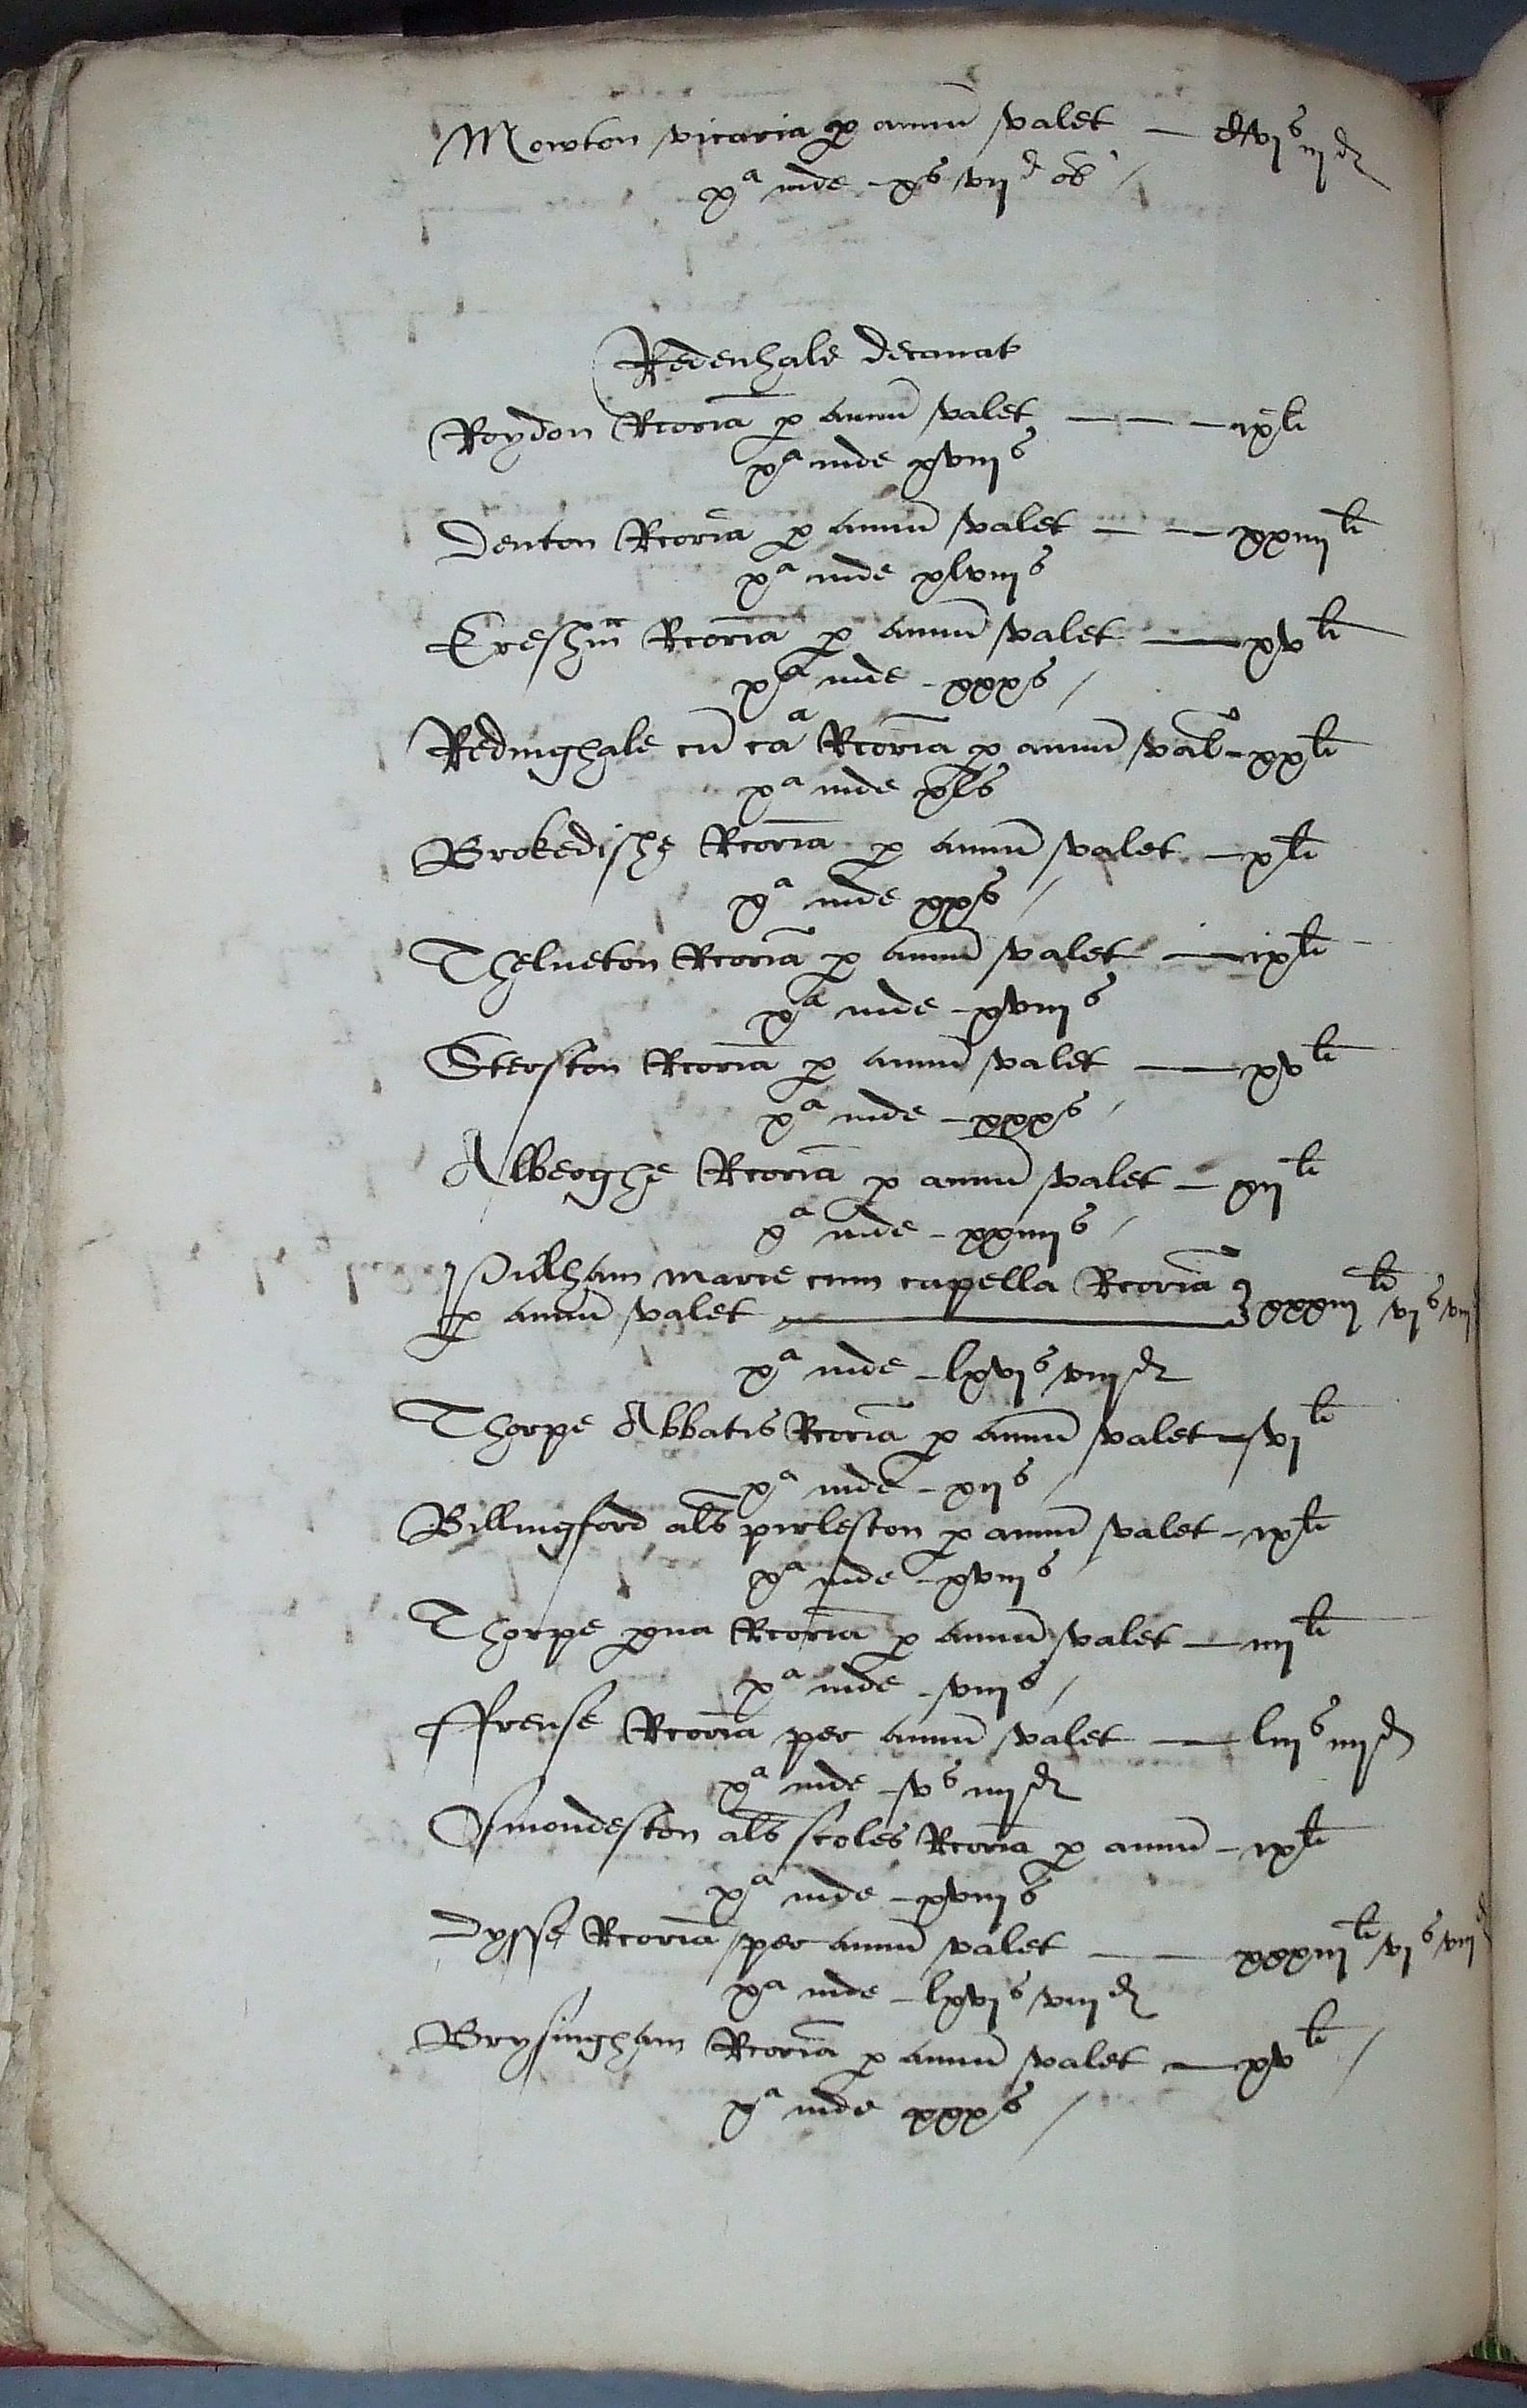 Mowton vicaria p annu valet — cvjs iijd
xa inde – xs vijd ob
Redenhale decanat
Roydon Rcoria p annu valet — — — ixli
xa inde xviijs
Denton Rcoria p annu valet — — xxiiijli
xa inde xlviijs
Ereshm Rcoria p annu valet — xvli
xa inde – xxxs /
Redinghale cu ca Rcoria p annu val – xxli
xa inde xls
Brokedishe Rcoria p annu valet – xli
xa inde xxs /
Thelueton Rcoria p annu valet — ixli
xa inde – xviijs
Sterston Rcoria p annu valet — xvli
xa inde – xxxs /
Alberghe Rcoria p annu valet – xijli
xa inde – xxiiijs /
Pulham marie cum capella Rcoria
p annu valet — xxxiijli vjs viij
xa inde – lxvjs viijd
Thorpe Abbatis Rcoria p annu valet – vjli
xa inde – xijs /
Billingford als pirleston p annu valet – ixli
xa inde – xviijs
Thorpe pua Rcoria p annu valet – iiijli
xa inde – viijs /
ffrense Rcoria per annu valet — liijs iiijd
xa inde – vs iiijd
Osmondeston als scoles Rcoria p annu – ixli
xa inde – xviijs
Dysse Rcoria per annu valet — — xxxiijli vjs viijd
xa inde – lxvjs viijd
Brysingham Rcoria p annu valet — xvli /
xa inde xxxs /